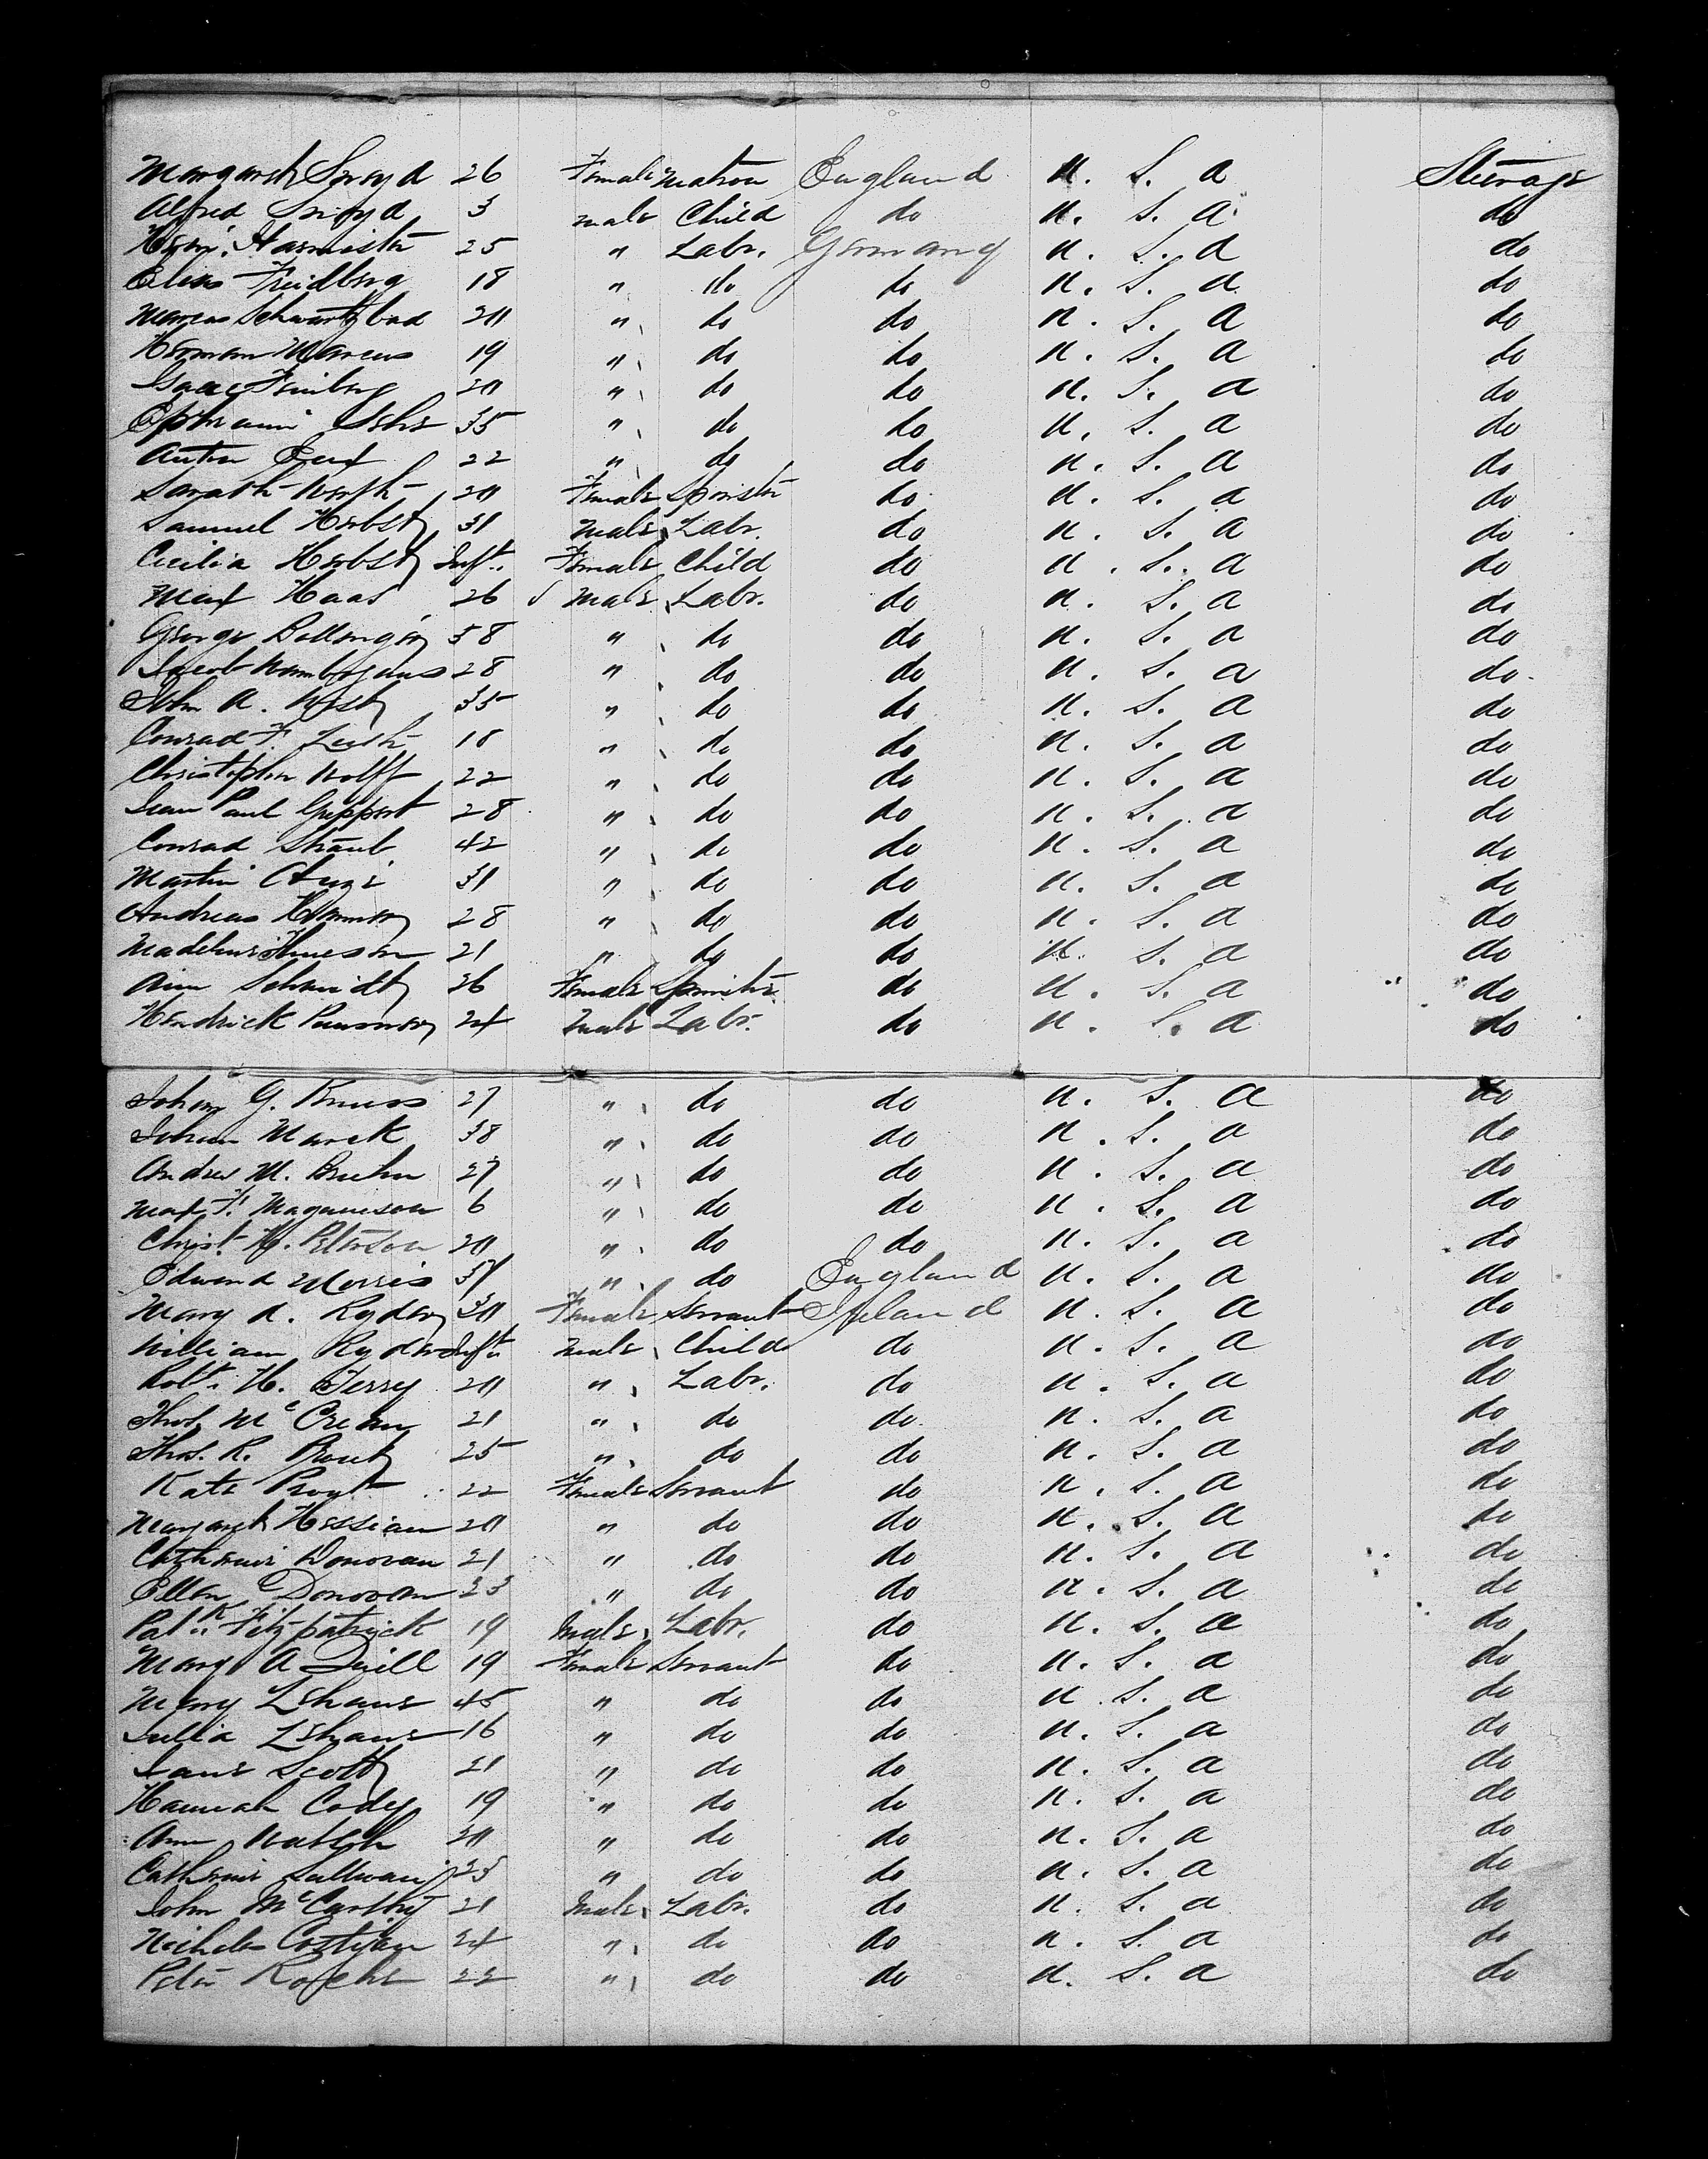 Margaret Sneyd 26 Female Matron England U. S. A Steerage
Alfred Sneyd 3 Male Child do U. S. A do
25 " Labr. Germany U. S. A do
Elias Freidberg 18 " do do U. S. A do
Marcus 20 " do do U. S. A do
Herman Marcus 19 " do do U. S. A do
Isaac Feinberg 20 " do do U. S. A do
Ephraim 35 " do do U. S. A do
Anton 22 " do do U. S. A do
Sarah 20 Female Spinster do U. S. A do
Samuel Herbst 31 Male Labr. do U. S. A do
Cecilia Herbst Inft. Female Child do U. S. A do
Max Haas 26 Male Labr. do U. S. A do
George Bollinger 58 " do do U. S. A do
Jacob 28 " do do U. S. A do
John A. 35 " do do U. S. A do
Conrad F. 18 " do do U. S. A do
Christopher Wolff 22 " do do U. S. A do
Jean Paul 28 " do do U. S. A do
Conrad Straub 42 " do do U. S. A do
Martin 31 " do do U. S. A do
Andreas 28 " do do U. S. A do
21 " do do U. S. A do
Ann Schmidt 26 Female Spinster do U. S. A do
Hendrick 24 Male Labr. do U. S. A do
Johan G. 27 " do do U. S. A do
Johan Marck 38 " do do U. S. A do
Andrew M. Bruhn 27 " do do U. S. A do
Max F. Magnuesen 6 " do do U. S. A do
Christ. H. Peterson 20 " do do U. S. A do
Edward Morris " do England U. S. A do
Mary A. Ryder 30 Female Servant Ireland U. S. A do
William Ryder Inft. Male Child do U. S. A do
Robt. H. Terry 20 " Labr. do U. S. A do
Thos. McCrean 21 " do do U. S. A do
Thos. R. Prout 25 " do do U. S. A do
Kate Prout 22 Female Servant do U. S. A do
Margaret Hessian 20 " do do U. S. A do
Catherine Donovan 21 " do do U. S. A do
Ellen Donovan 23 " do do U. S. A do
Patk. Fitzpatrick 19 Male Labr. do U. S. A do
Mary A Quill 19 Female Servant do U. S. A do
Mary Lehane 45 " do do U. S. A do
Julia Lehane 16 " do do U. S. A do
Jane Scott 21 " do do U. S. A do
Hannah Cody 19 " do do U. S. A do
Ann 20 " do do U. S. A do
Catherine Sullivan 25 " do do U. S. A do
John McCarthy 21 Male Labr. do U. S. A do
Nicholas Costigan 24 " do do U. S. A do
Peter Roche 22 " do do U. S. A do